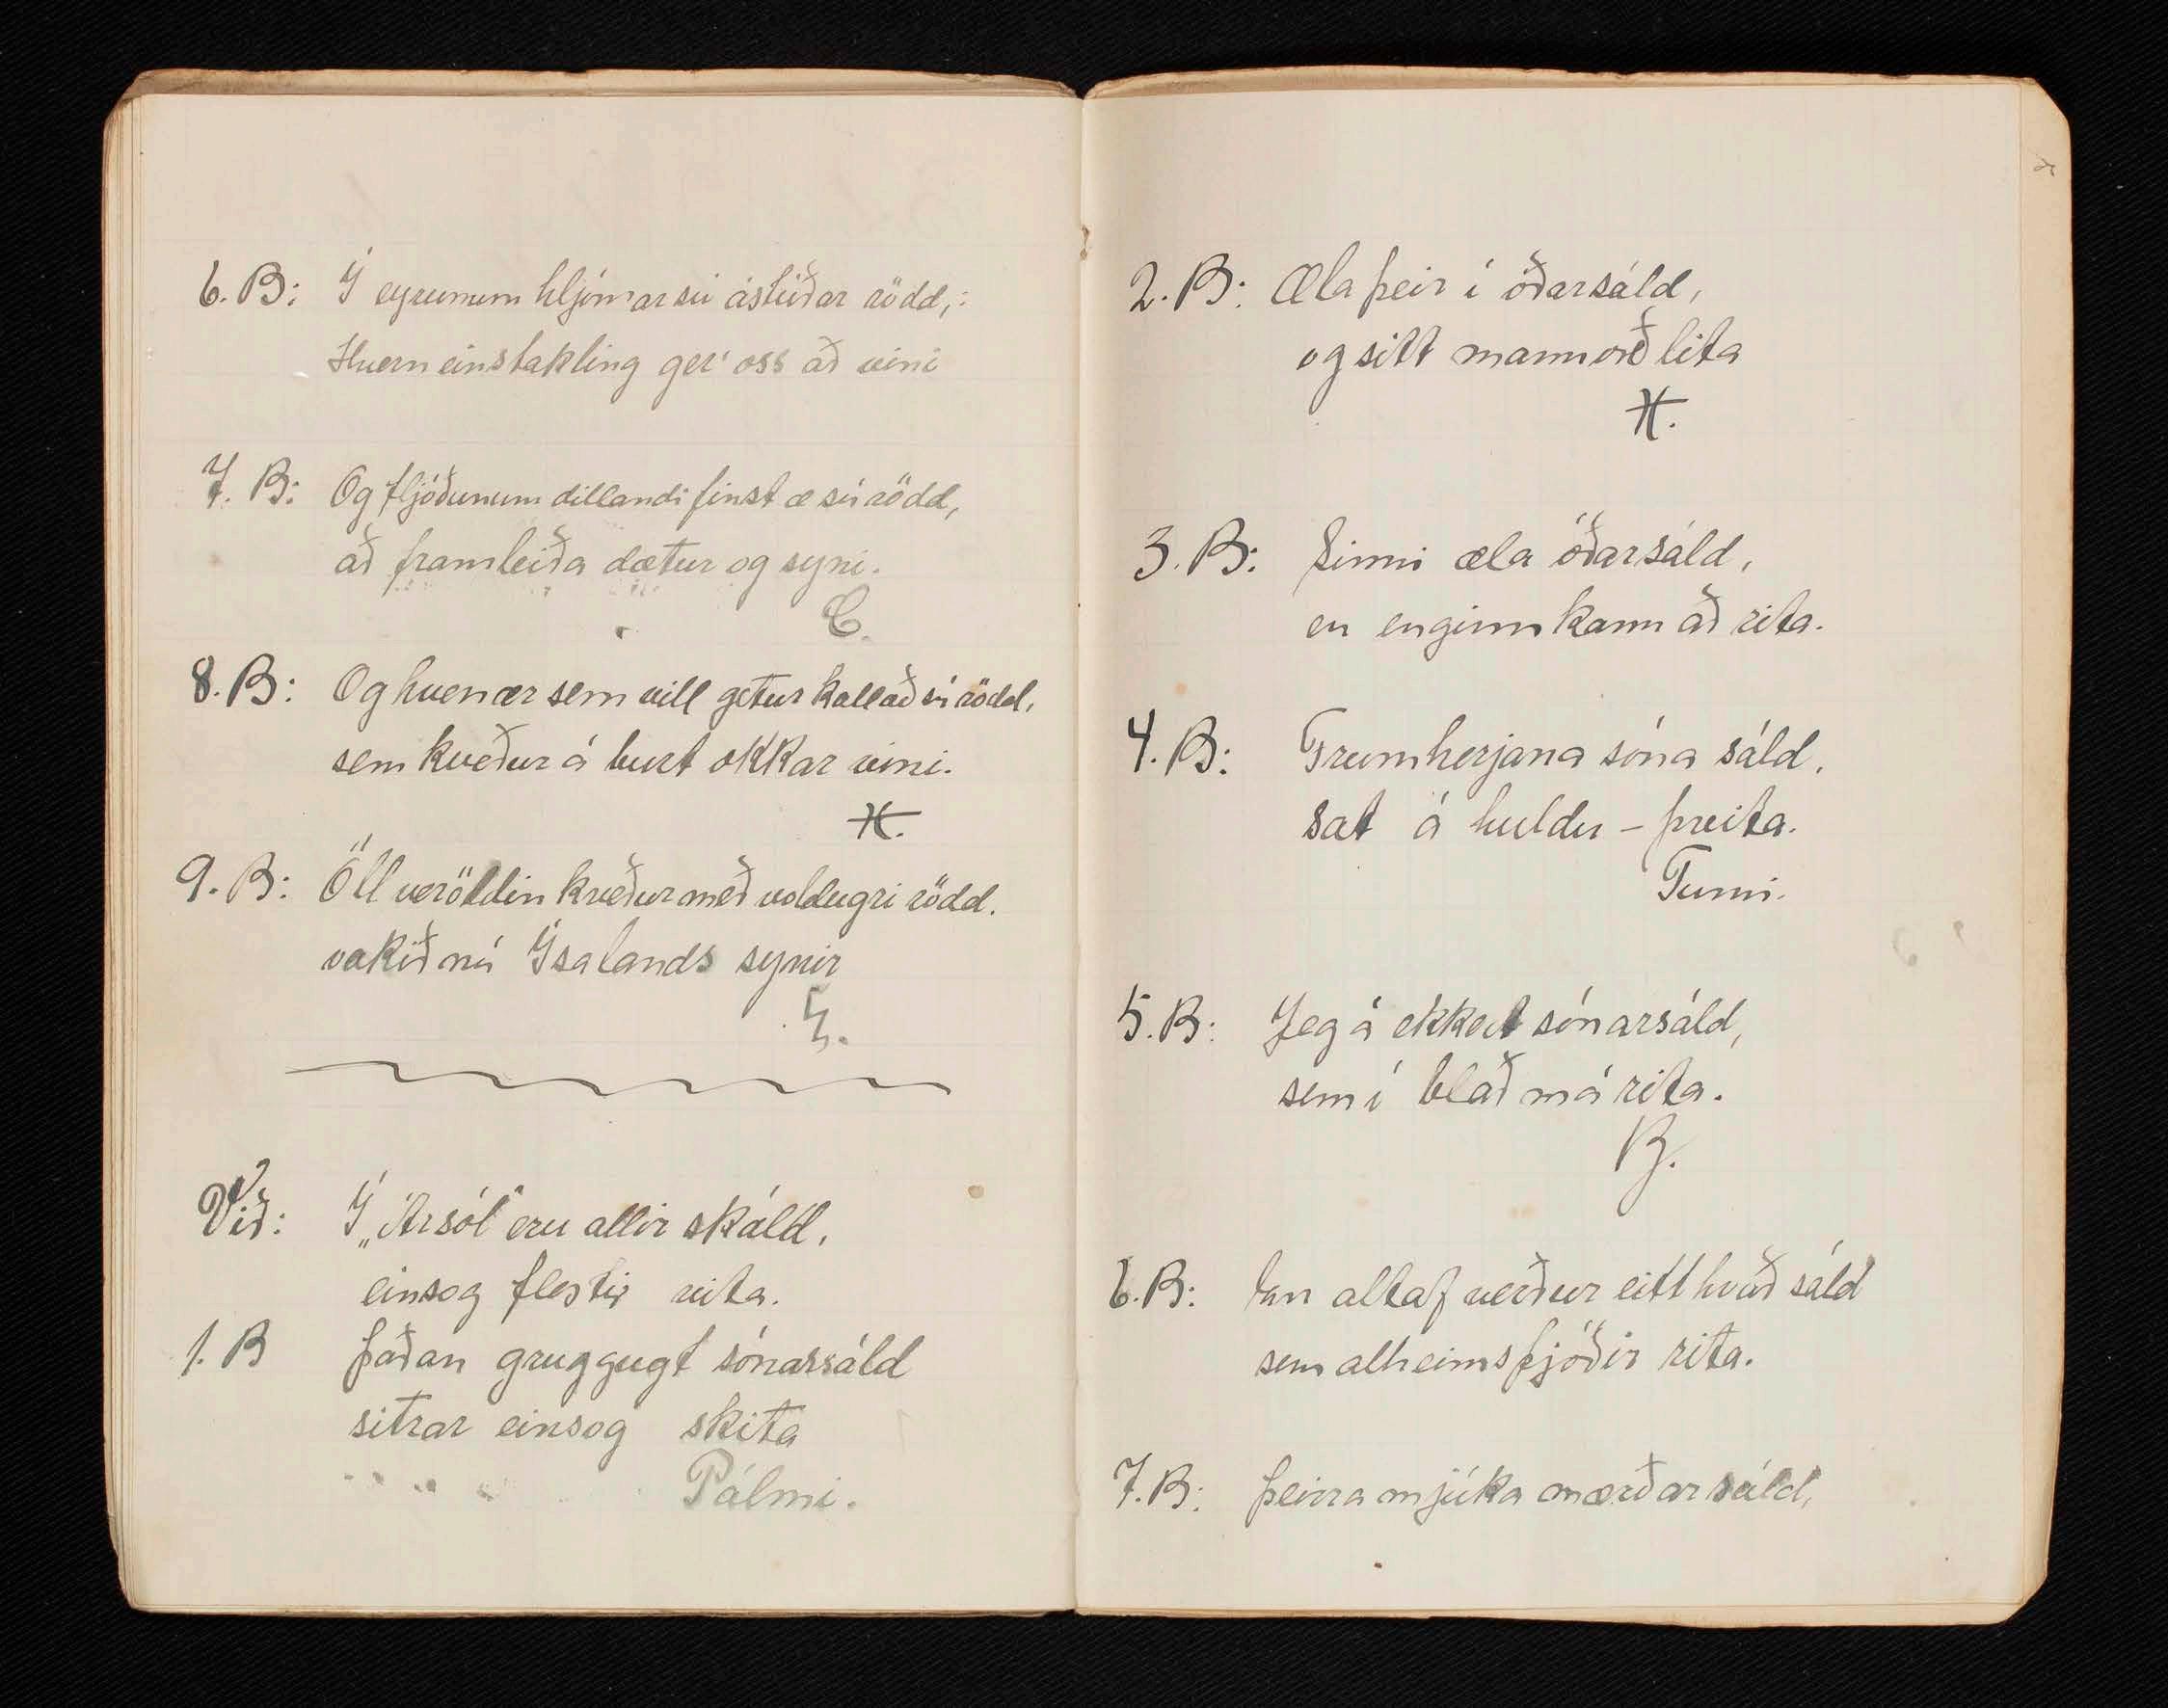 6. B: Í eyrunum hljómar sú ástúðar rödd,:
Hvern einstakling ger' oss að vini
7. B: Og fljóðunum dillandi finst æ sú rödd,
að framleiða dætur og syni.
C.
8. B: Og hvenær sem vill getur kallað sú rödd,
sem kveður á burt okkar vini.
H.
9. B: Öll veröldin kveður með voldugri rödd.
vakið nú Ísalands synir
Við: Í „Ársól" eru allir skáld,
einsog flestir vita.
1. B þaðan gruggugt sónarsáld
sitrar einsog skita
Pálmi.
2. B: Æla þeir í óðarsáld,
og sitt mannorð lita
H.
3. B: Sinni æla óðarsáld,
en enginn kann að rita.
4. B: Frumherjana sóna sáld,
sat á huldu - þvita.
Tumi.
5. B: Jeg á ekkert sónarsáld,
sem í blað má rita.
B.
6. B: En altaf verður eitthvað sáld
sem alheimsþjóðir rita.
7. B: þeirra mjúka mærðar sáld,